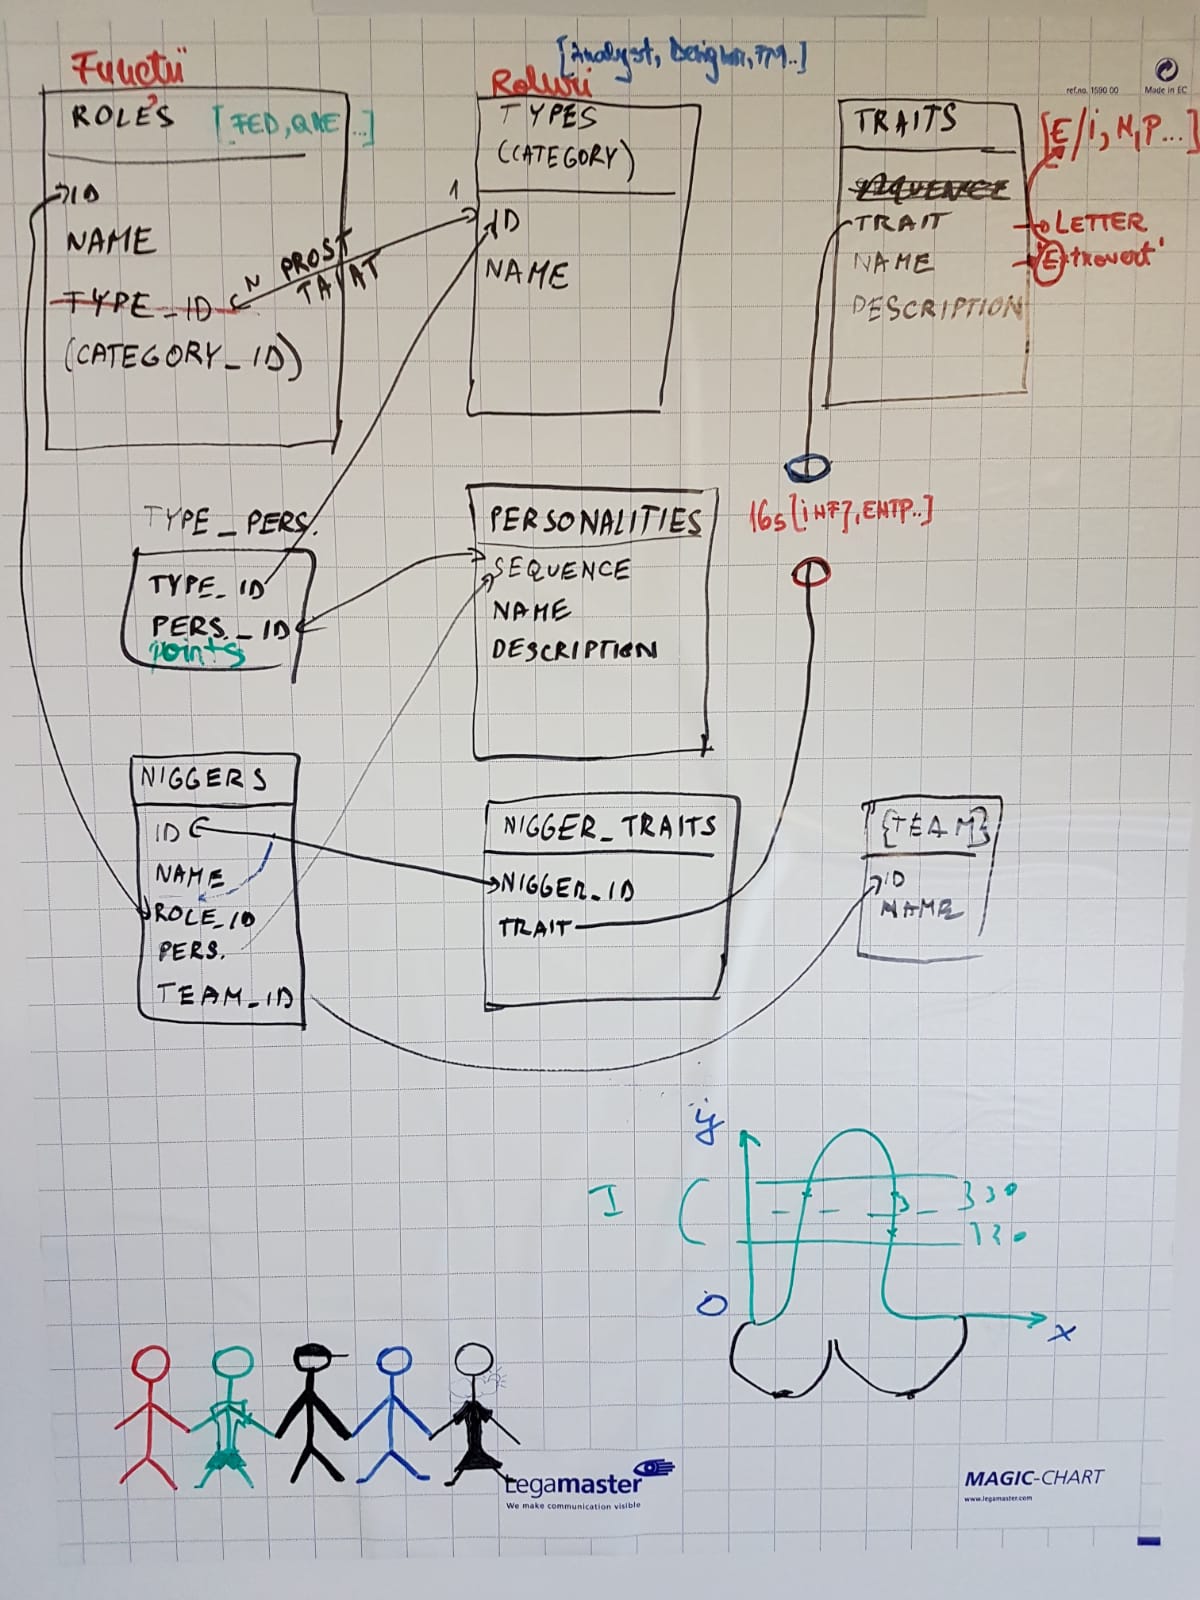 Functii
ROLES [FED, QAE...]
ID
NAME
TYPE_ID
(CATEGORY_ID)
[Analyst, Designer, PM..]
Roluri
TYPES
(CATEGORY)
1
ID
NAME
N PROST
TAIAT
ref.no. 1590 00
Made in EC
TRAITS
[E/i, N, P...]
SEQUENCE
TRAIT
LETTER
NAME
'Extrovert'
DESCRIPTION
TYPE_PERS.
TYPE_ID
PERS._ID
points
PERSONALITIES
SEQUENCE
NAME
DESCRIPTION
16s [iNFJ, ENTP..]
NIGGERS
ID
NAME
ROLE_ID
PERS.
TEAM_ID
NIGGER_TRAITS
NIGGER_ID
TRAIT
{TEAM}
ID
NAME
y
I
330
130
0
x
Legamaster
We make communication visible
MAGIC-CHART
www.legamaster.com